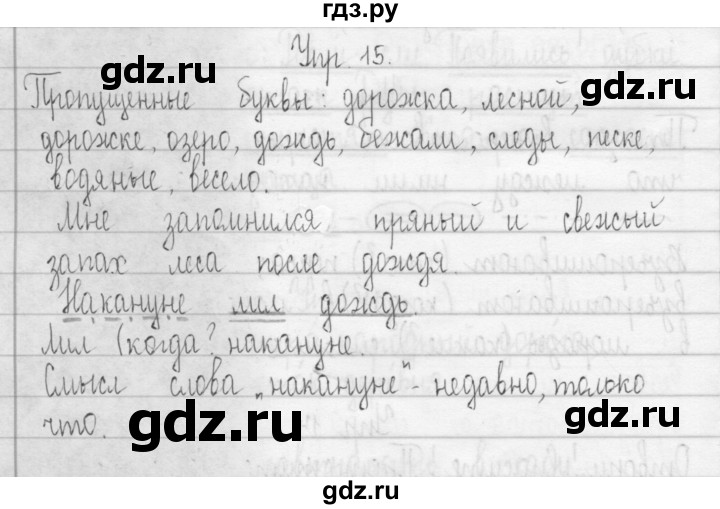 гдз.ру
Упр. 15.
gdz.ru
gdz.ru
Пропущенные буквы: дорожка, лесной,
дорожке, озеро, дождь, бежали, следы, песке,
водяные, весело.
Мне запомнился пряный и свежый
запах леса после дождя.
Накануне лил дождь.
Лил (когда? накануне.
Смысл слова „накануне" - недавно, только
что.
gdz.ru
gdz.ru
gdz.ru